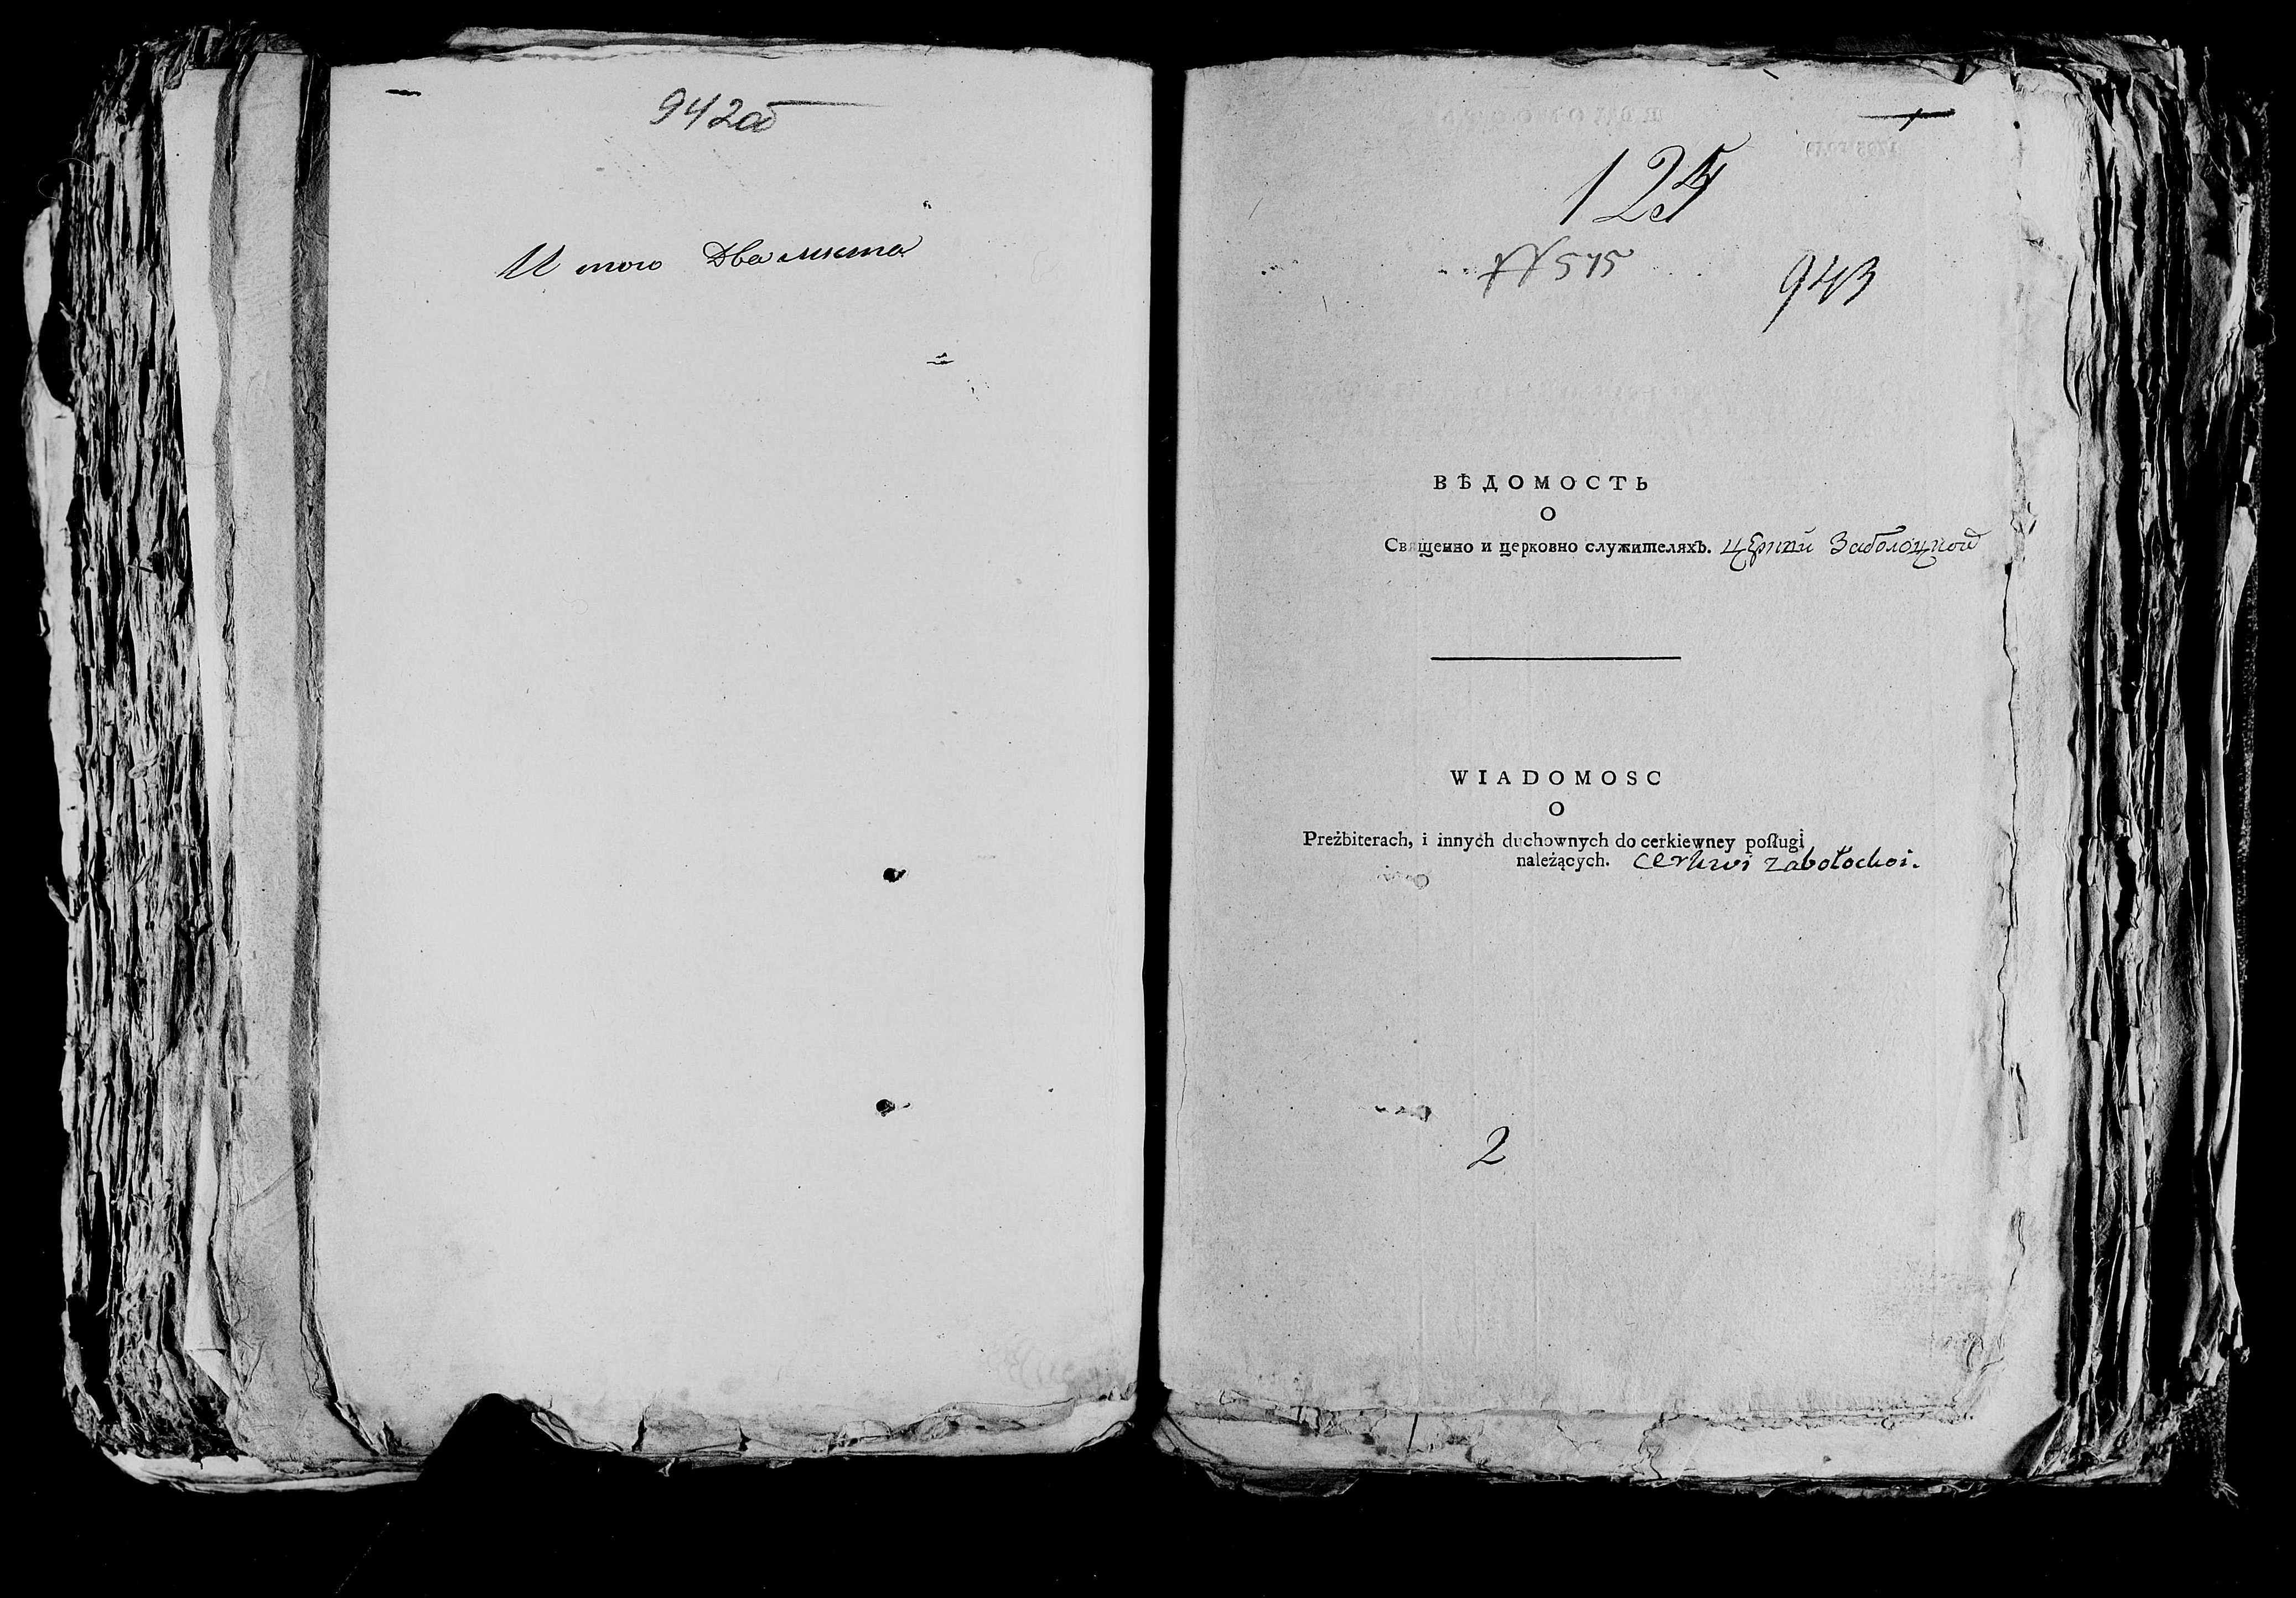 942об
И того Два листа
125
№ 515
943
ВѢДОМОСТЬ
О
Священно и церковно служителяхъ. церкви Заболоцкой
WIADOMOSC
O
Preżbiterach, i innych duchownych do cerkiewney poſługi
należących. cerkwi zabołockoi.
2